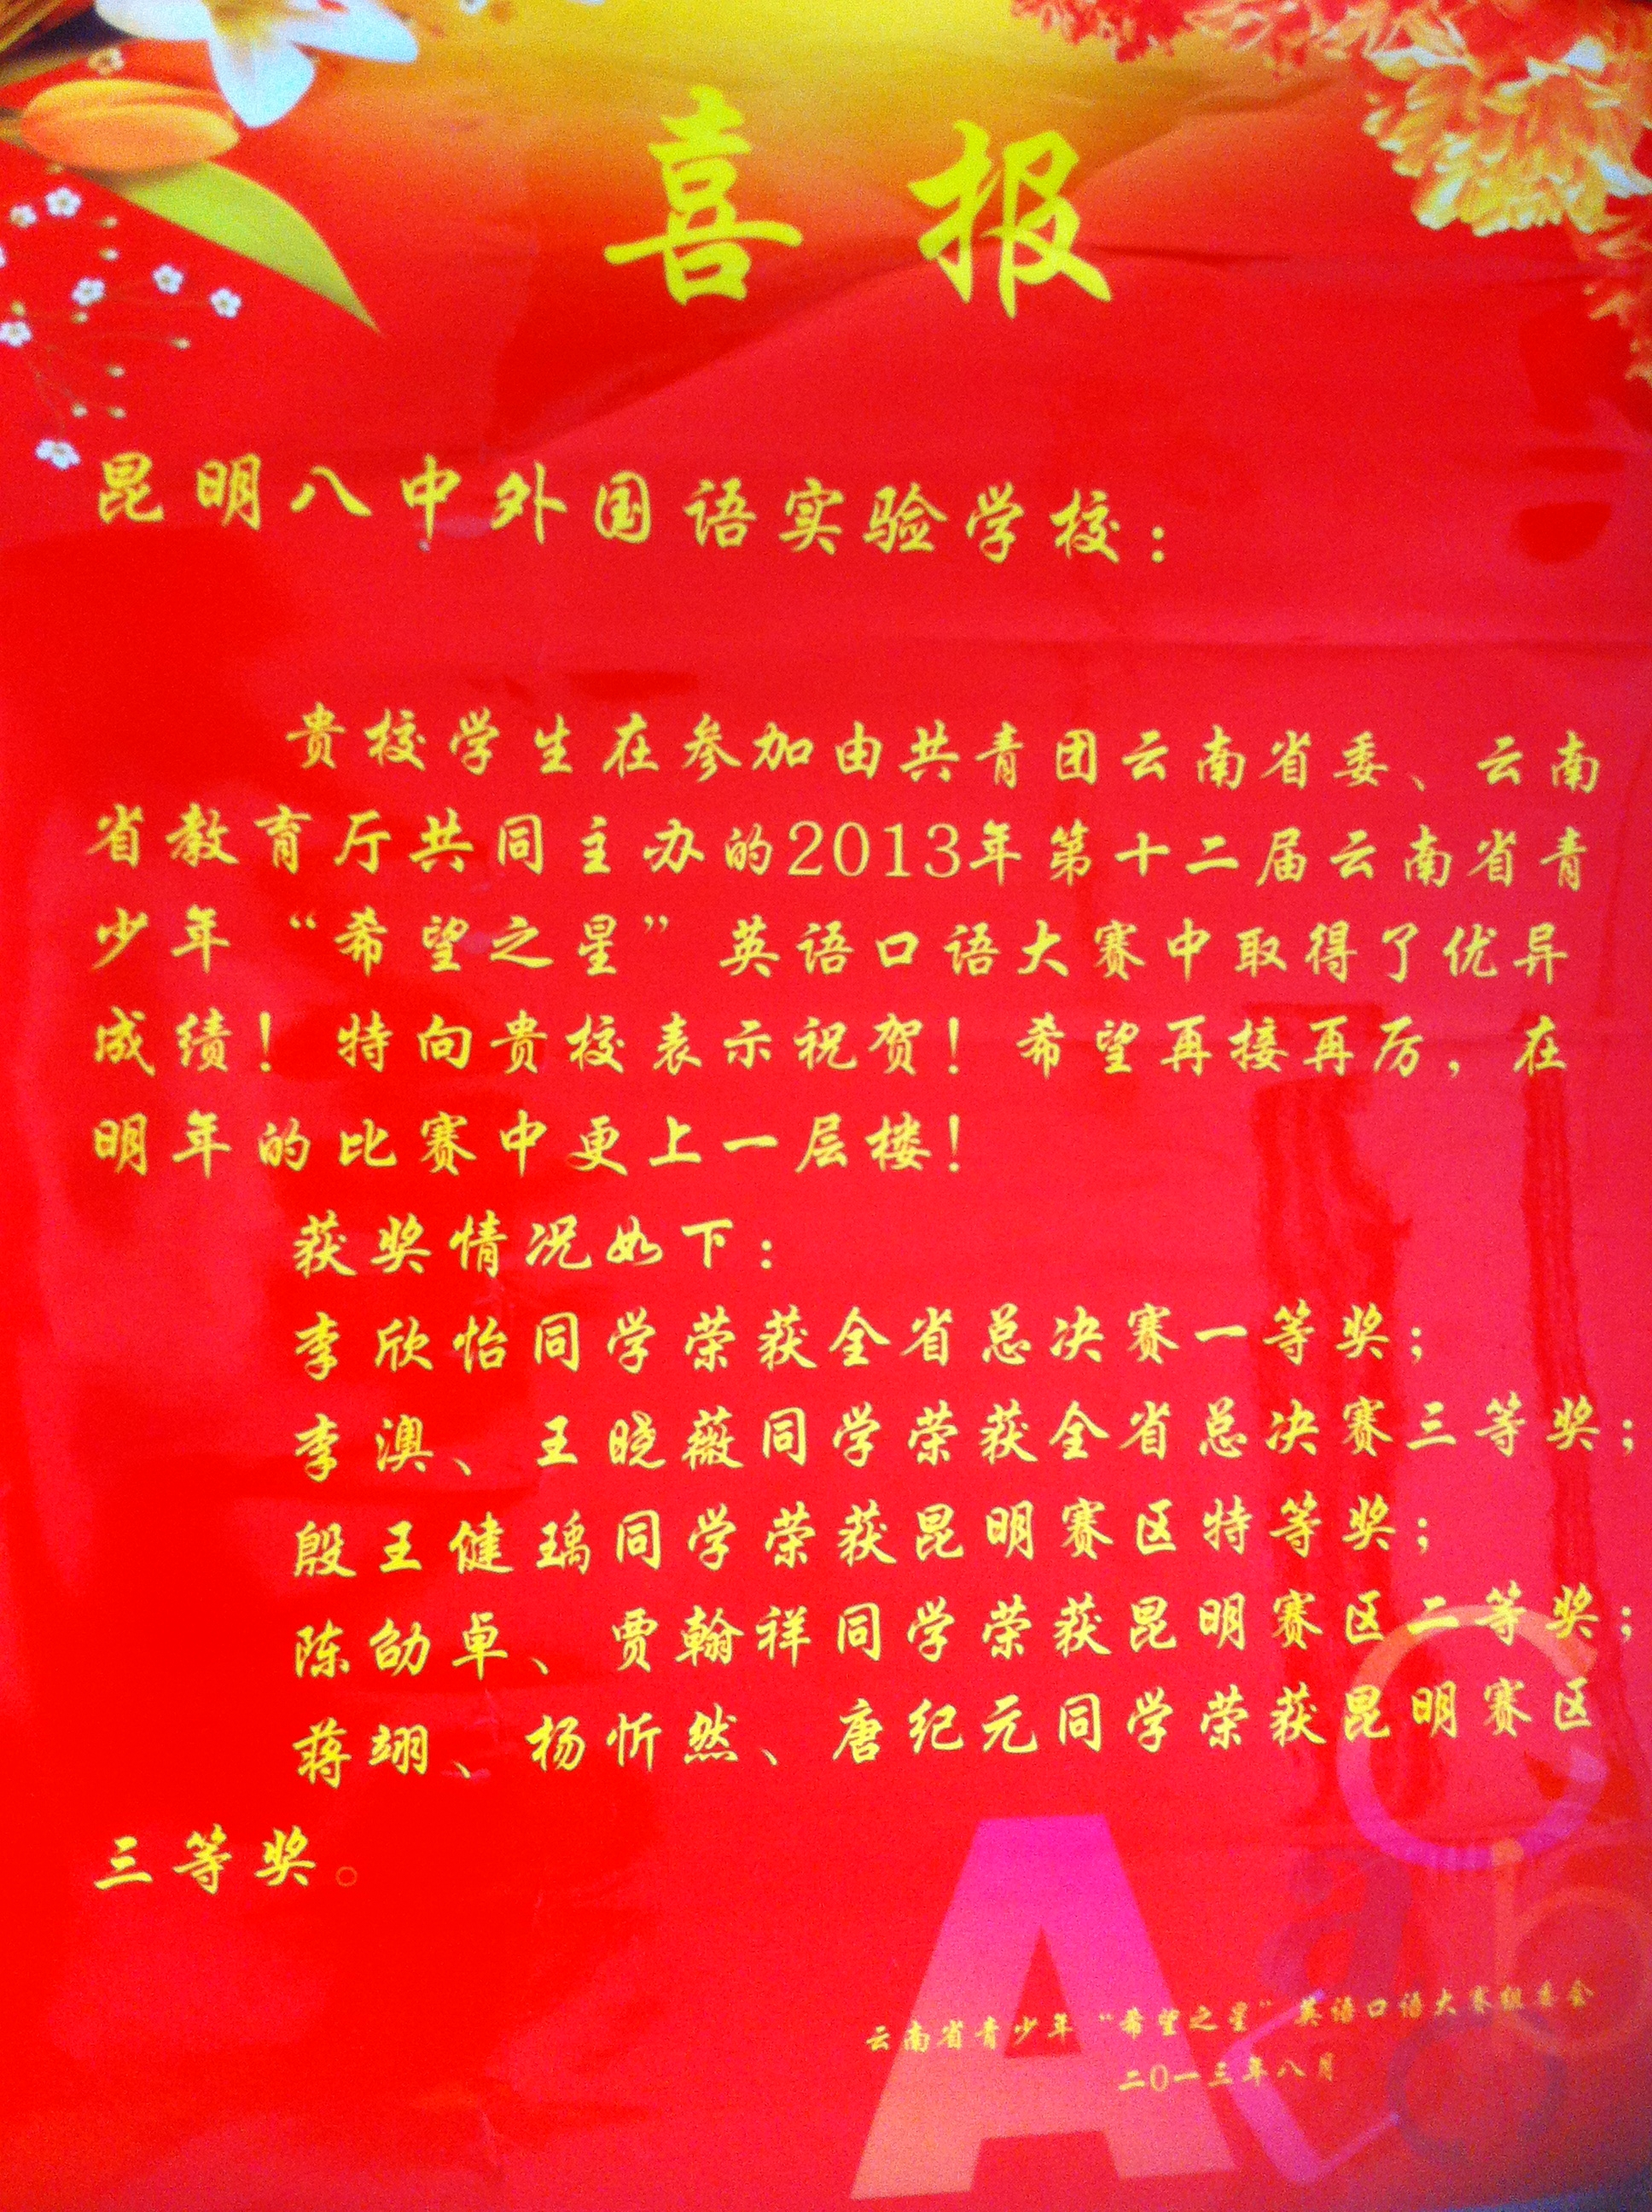 喜报
昆明八中外国语实验学校：
贵校学生在参加由共青团云南省委、云南
省教育厅共同主办的2013年第十二届云南省青
少年“希望之星”英语口语大赛中取得了优异
成绩！特向贵校表示祝贺！希望再接再厉，在
明年的比赛中更上一层楼！
获奖情况如下：
李欣怡同学荣获全省总决赛一等奖；
李澳、王晓薇同学荣获全省总决赛三等奖；
殷王健瑀同学荣获昆明赛区特等奖；
陈劬卓、贾翰祥同学荣获昆明赛区二等奖；
蒋翊、杨忻然、唐纪元同学荣获昆明赛区
三等奖。
云南省青少年“希望之星”英语口语大赛组委会
二0一三年八月
A
C
a
b